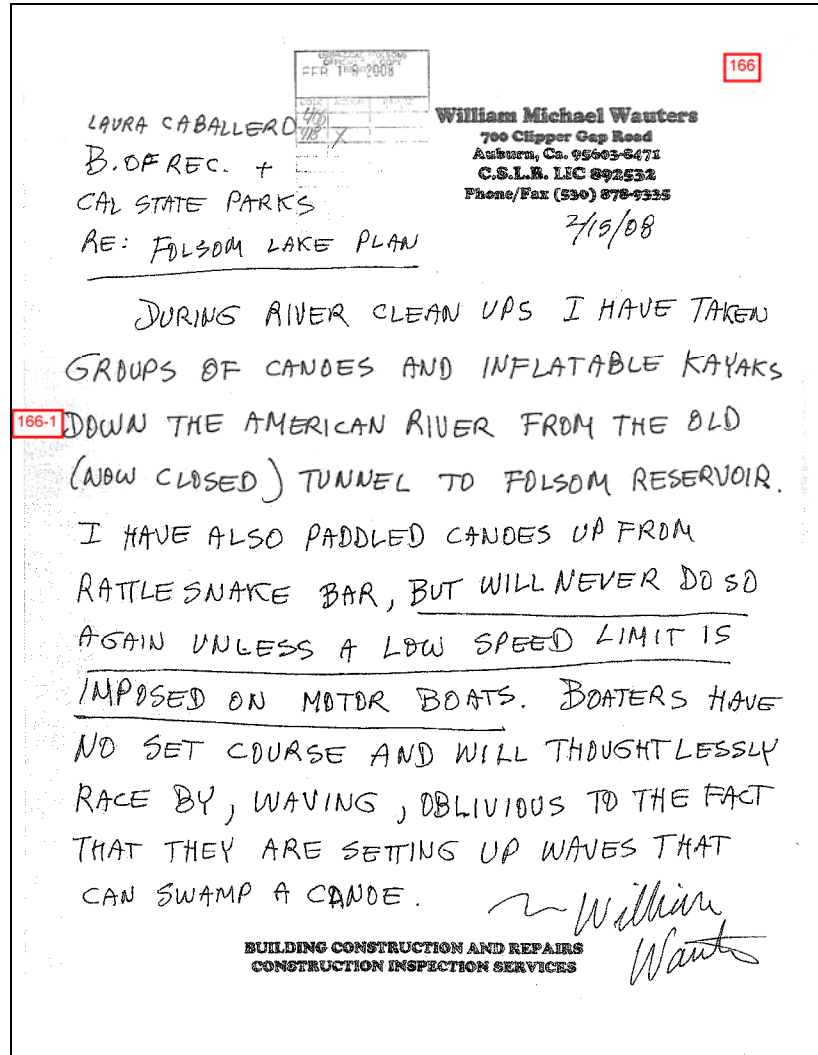 166
FEB 19 2008
LAURA CABALLERO
B. OF REC. +
CAL STATE PARKS
RE: FOLSOM LAKE PLAN
William Michael Wauters
700 Clipper Gap Road
Auburn, Ca. 95603-8471
C.S.L.B. LIC 892532
Phone/Fax (530) 878-9335
2/15/08
DURING RIVER CLEAN UPS I HAVE TAKEN
GROUPS OF CANOES AND INFLATABLE KAYAKS
166-1
DOWN THE AMERICAN RIVER FROM THE OLD
(NOW CLOSED) TUNNEL TO FOLSOM RESERVOIR.
I HAVE ALSO PADDLED CANOES UP FROM
RATTLESNAKE BAR, BUT WILL NEVER DO SO
AGAIN UNLESS A LOW SPEED LIMIT IS
IMPOSED ON MOTOR BOATS. BOATERS HAVE
NO SET COURSE AND WILL THOUGHTLESSLY
RACE BY, WAVING, OBLIVIOUS TO THE FACT
THAT THEY ARE SETTING UP WAVES THAT
CAN SWAMP A CANOE.
William
Wauters
BUILDING CONSTRUCTION AND REPAIRS
CONSTRUCTION INSPECTION SERVICES